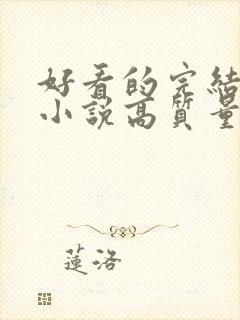 好看的完結
小說高質量
蓮洛